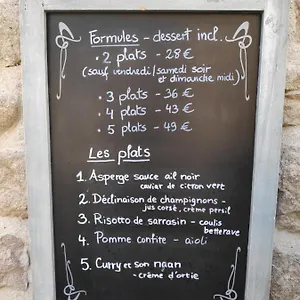 Formules - dessert incl.
• 2 plats - 28 €
(sauf vendredi/samedi soir
et dimanche midi)
• 3 plats - 36 €
• 4 plats - 43 €
• 5 plats - 49 €
Les plats
1. Asperge sauce ail noir
caviar de citron vert
2. Déclinaison de champignons -
jus corsé, crème persil
3. Risotto de sarrasin - coulis
betterave
4. Pomme confite - aïoli
5. Curry et son naan
- crème d'ortie